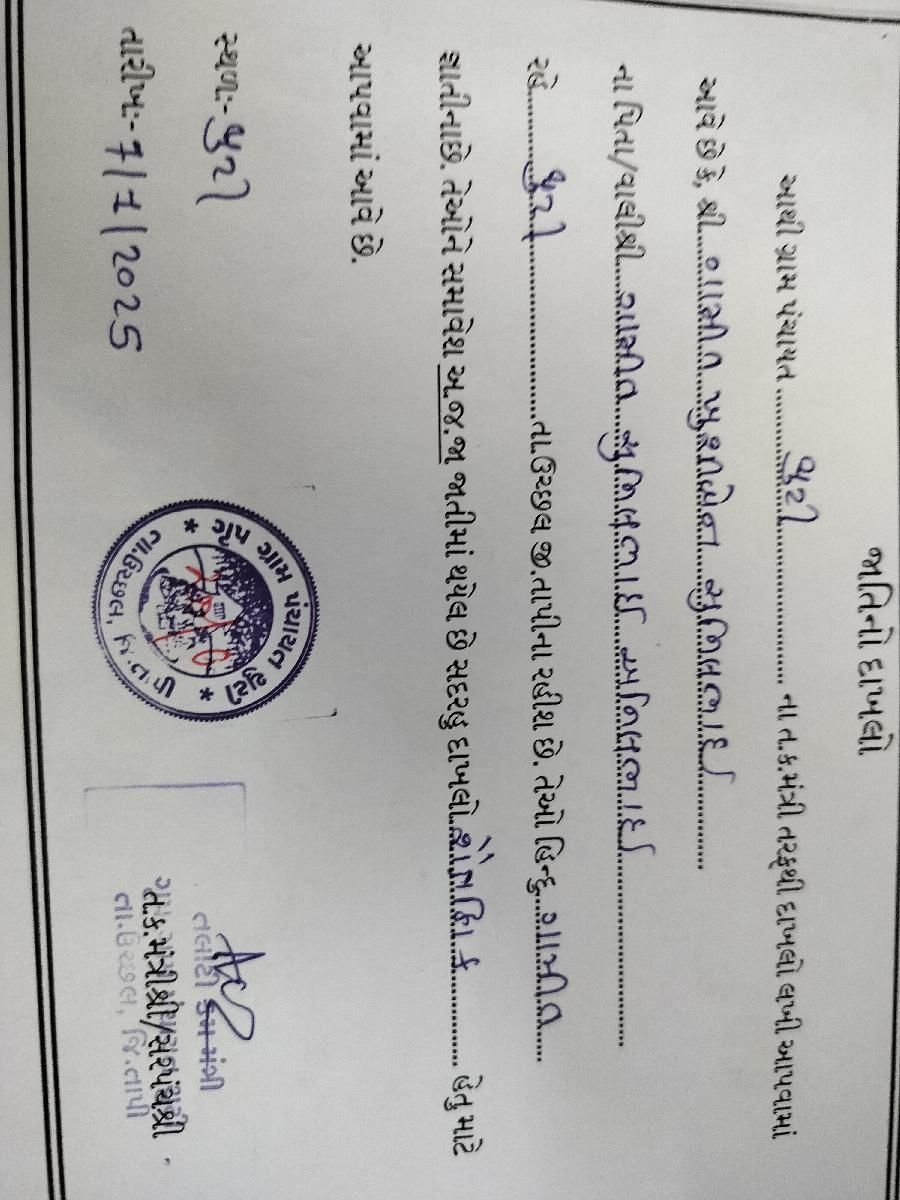 જાતિનો દાખલો
આથી ગ્રામ પંચાયત ........ જુટી ........ ના ત.ક.મંત્રી તરફથી દાખલો લખી આપવામાં
આવે છે કે, શ્રી .... ગામીત ખુશીબેન સુનિલભાઈ ........
ના પિતા/વાલીશ્રી .... ગામીત સુનિલભાઈ અનિલભાઈ ........
રહે. ........ ........ તા.ઉચ્છલ જી.તાપીના રહીશ છે. તેઓ હિન્દુ .... ગામીત ....
જ્ઞાતીના છે. તેઓને સમાવેશ અ.જ.જા જાતીમાં થયેલ છે સદરહુ દાખલો .... શૈક્ષણિક .... હેતુ માટે
આપવામાં આવે છે.
સ્થળ:-
તારીખ:- 7/7/2025
પંચાયત
તા.ઉચ્છલ,
તલાટી કમ મંત્રી
ત.ક.મંત્રીશ્રી/સરપંચશ્રી
તા.ઉચ્છલ, જિ.તાપી